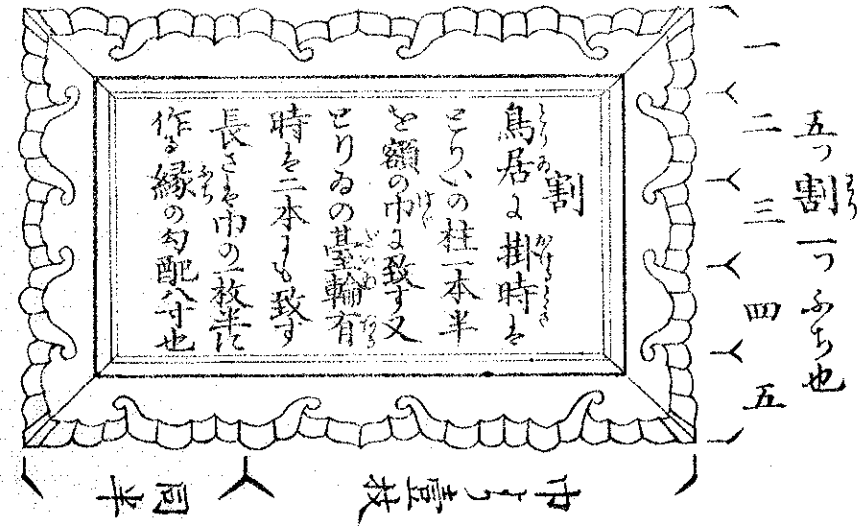 五つ割一つふち也
一
二
三
四
五
割
鳥居に掛時は
とりいの柱一本半
を額の巾に致す又
とりゐの基輪有
時は二本にも致す
長さは巾の一枚半に
作る縁の勾配八寸也
巾より壹枚
同半